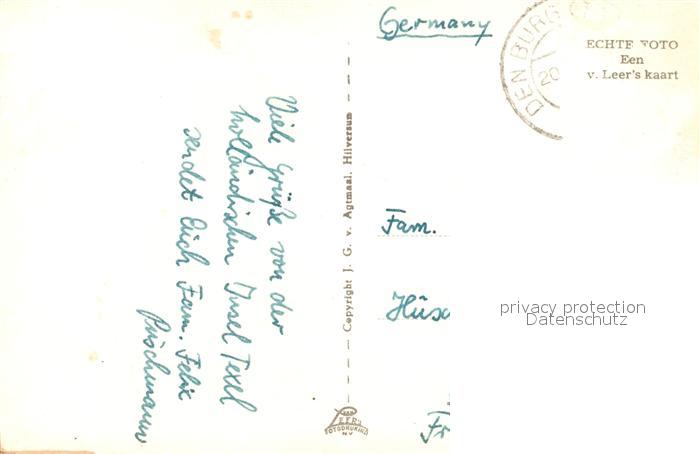 Germany
DEN BURG
20
ECHTE FOTO
Een
v. Leer's kaart
Viele Grüße von der
holländischen Insel Texel
sendet Euch Fam. Felix
Copyright J. G. v. Agtmaal. Hilversum
VAN
LEER'S
FOTODRUKIND
NV
Fam.
Hüs
Fr
privacy protection
Datenschutz